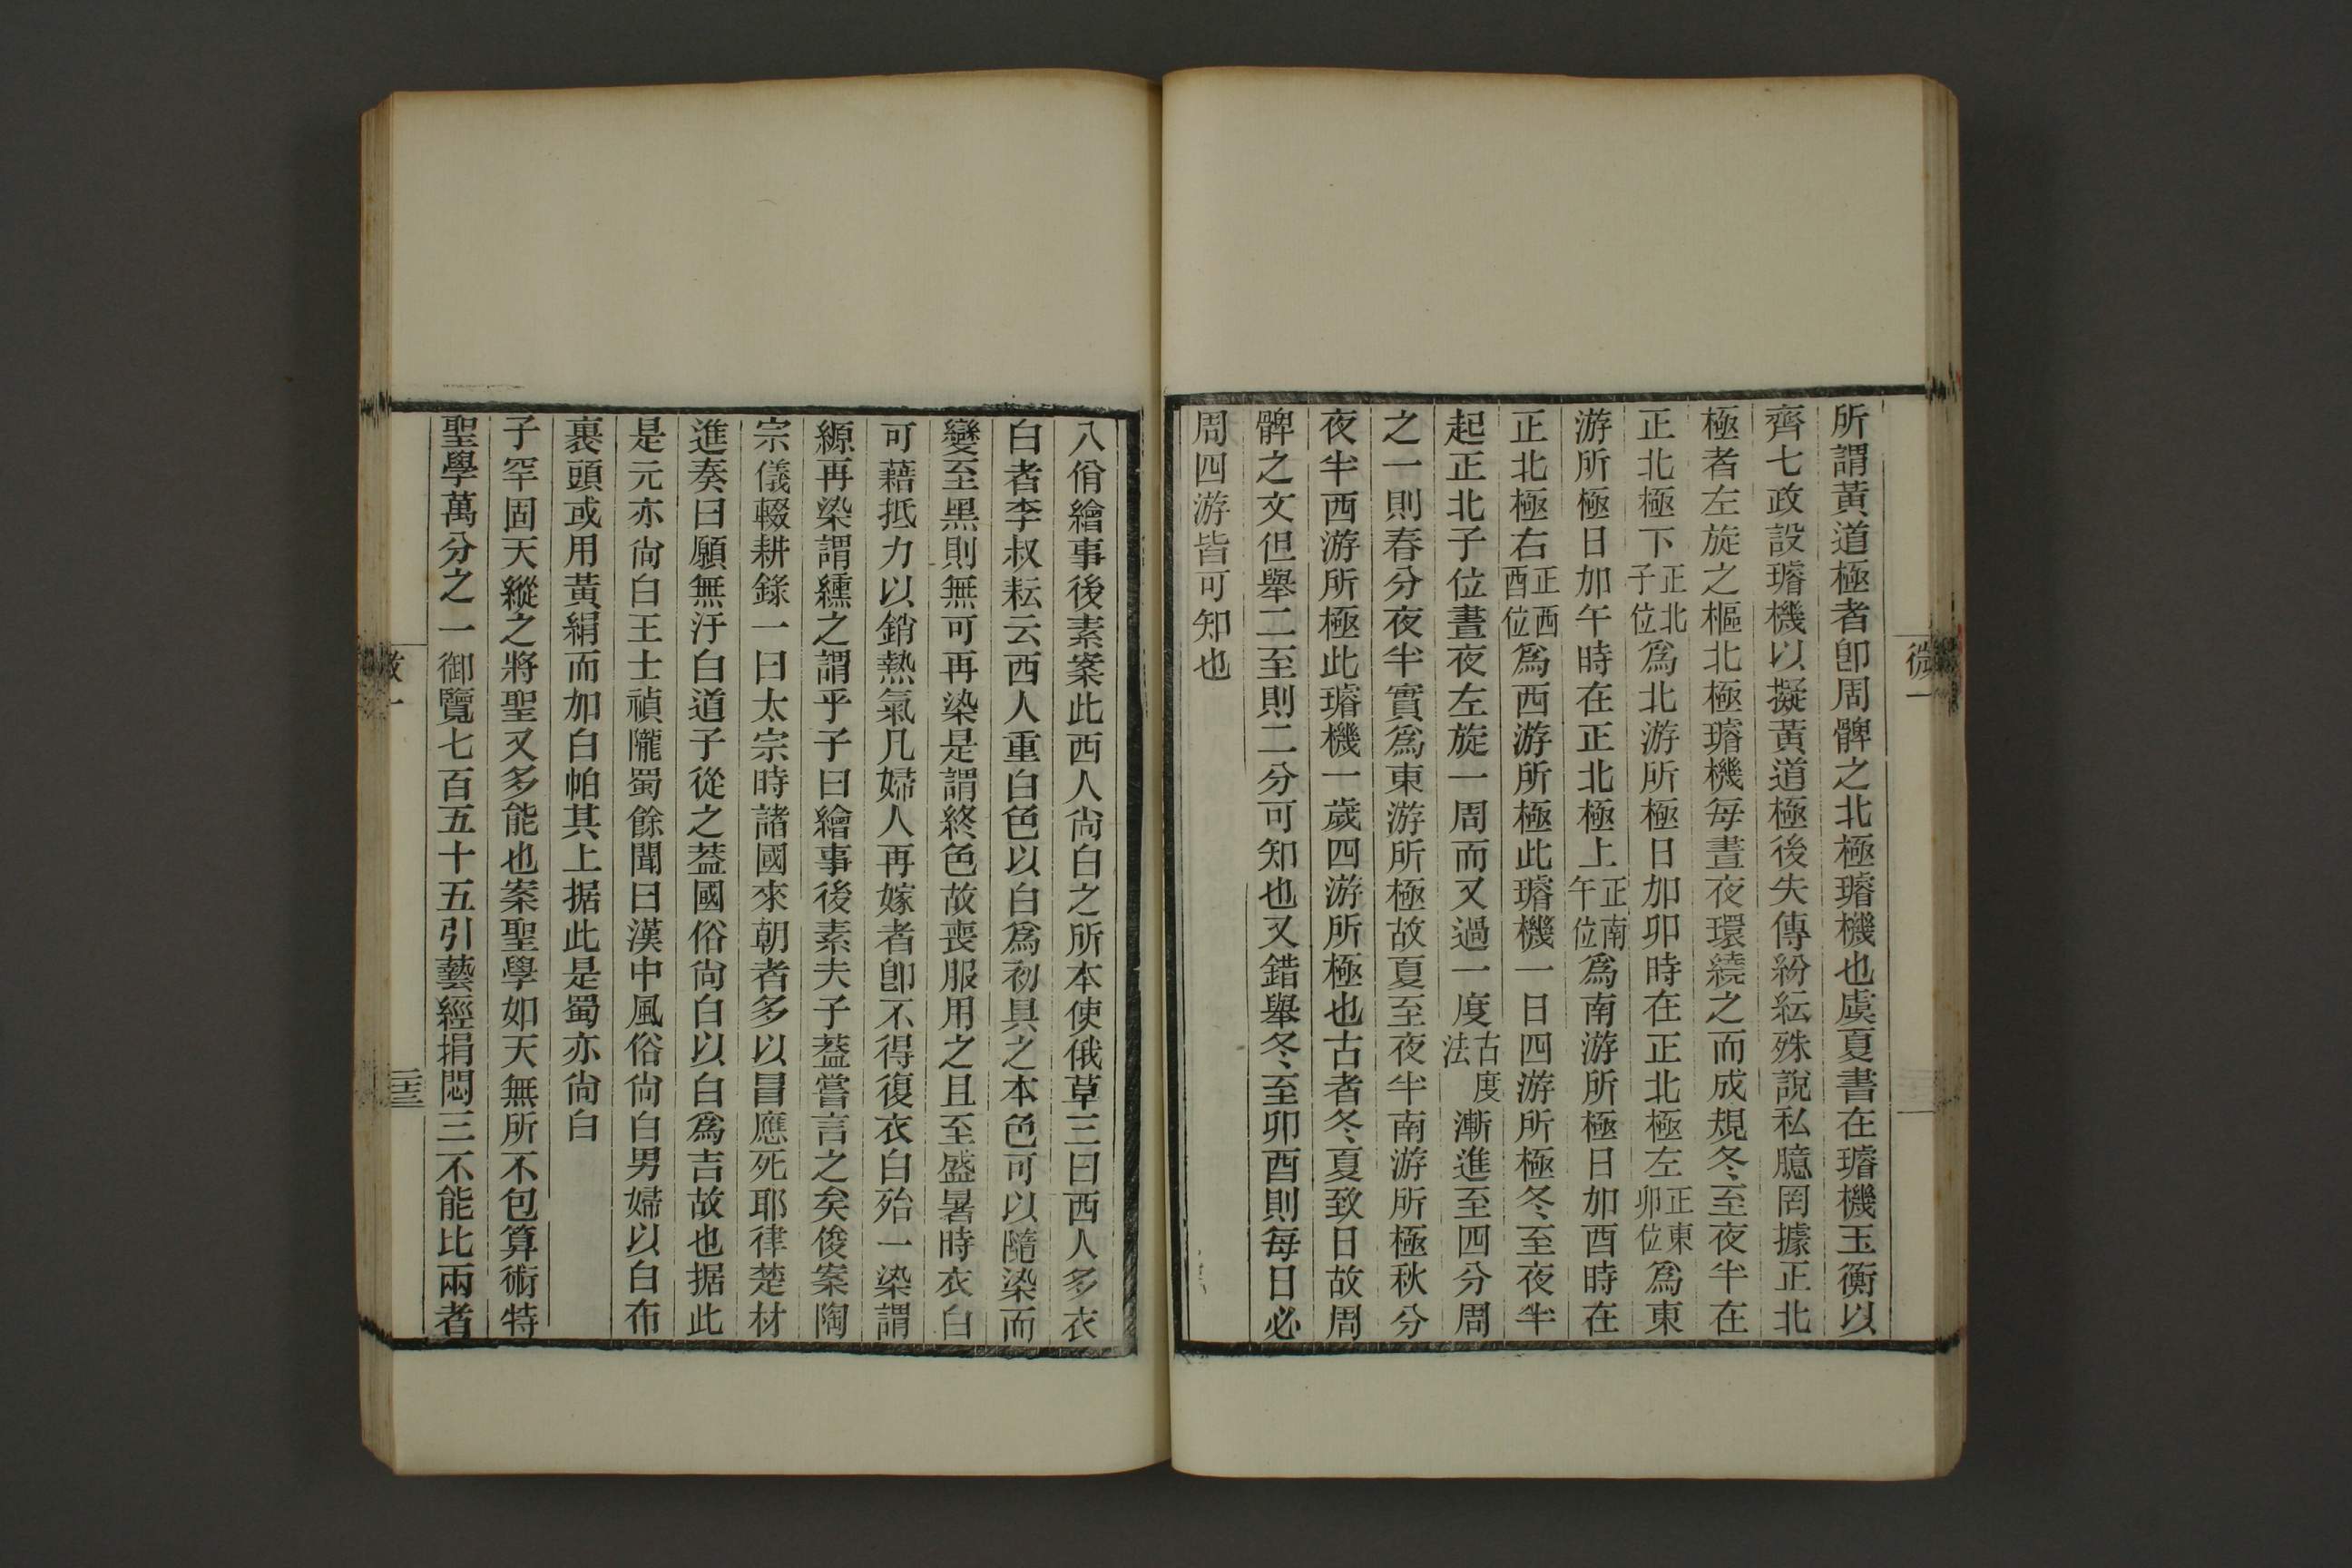 所謂黃道極者卽周髀之北極璿機也虞夏書在璿機玉衡以
齊七政設璿機以擬黃道極後失傳紛紜殊說私臆罔據正北
極者左旋之樞北極璿機每晝夜環繞之而成規冬至夜半在
正北極下正北子位爲北游所極日加卯時在正北極左正東卯位爲東
游所極日加午時在正北極上正南午位爲南游所極日加酉時在
正北極右正西酉位爲西游所極此璿機一日四游所極冬至夜半
起正北子位晝夜左旋一周而又過一度古度法漸進至四分周
之一則春分夜半實爲東游所極故夏至夜半南游所極秋分
夜半西游所極此璿機一歲四游所極也古者冬夏致日故周
髀之文但舉二至則二分可知也又錯舉冬至卯酉則每日必
周四游皆可知也
微一
八佾繪事後素案此西人尙白之所本使俄草三曰西人多衣
白者李叔耘云西人重白色以白爲初具之本色可以隨染而
變至黑則無可再染是謂終色故喪服用之且至盛暑時衣白
可藉抵力以銷熱氣凡婦人再嫁者卽不得復衣白殆一染謂
縓再染謂纁之謂乎子曰繪事後素夫子葢嘗言之矣俊案陶
宗儀輟耕錄一曰太宗時諸國來朝者多以冒應死耶律楚材
進奏曰願無汙白道子從之葢國俗尙白以白爲吉故也据此
是元亦尙白王士禎隴蜀餘聞曰漢中風俗尙白男婦以白布
裹頭或用黃絹而加白帕其上据此是蜀亦尙白
子罕固天縱之將聖又多能也案聖學如天無所不包算術特
聖學萬分之一御覽七百五十五引藝經捐悶三不能比兩者
微一